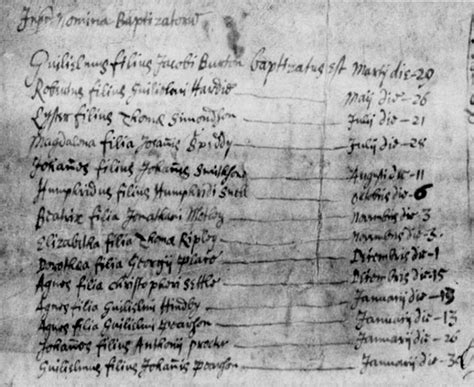 Nomina Baptizatorũ
Guilielmus filius Jacobi Burton baptizatus est Martij die - 20
filius Guilielmi Hardie Maij die - 26
filius Thomæ Simondson Julij die - 21
Magdalena filia Johañis Julij die - 28
Johañes filius Johañis Augusti die - 11
Humphridus filius Humphridi Octobris die - 6
Beatrix filia Jonathani Novembris die - 3
Elizabetha filia Thomæ Ripley Novembris die -
Dorothea filia Georgij Decembris die - 1
Agnes filia Christophori Settle Decembris die - 15
Agnes filia Guilielmi Hindby Januarij die - 13
Agnes filia Guilielmi Pearson Januarij die - 13
Johañes filius Anthonij Procter Januarij die - 26
Guilielmus filius Johañis Pearson Januarij die - 3